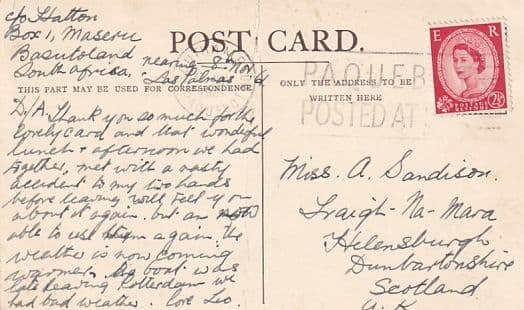 c/o Hatton
Box 1, Maseru
Basutoland
South Africa.
nearing 8th Nov
Las Palmas
POST CARD.
E R
POSTAGE REVENUE
2½D
PAQUEB
POSTED AT
THIS PART MAY BE USED FOR CORRESPONDENCE
ONLY THE ADDRESS TO BE
WRITTEN HERE
D/A. Thank you so much for the
lovely card and that wonderful
lunch & afternoon we had
together, met with a nasty
accident to my two hands
before leaving will tell you
about it again. but am now
able to use them again, the
weather is now coming
warmer. boat was
late leaving Rotterdam we
had bad weather. love Leo.
Miss. A. Sandison.
Traigh-Na-Mara
Helensburgh
Dunbartonshire
Scotland
U.K.